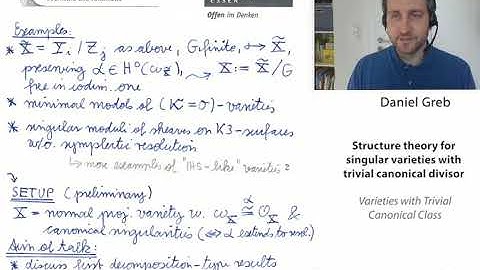 Offen im Denken
Examples:
* X̃ = Y₁/Z, as above, G finite, ↪ X̃,
preserving α ∈ H⁰(ω_X̃), ⇝ X := X̃/G
free in codim. one
* minimal models of (K = 0)-varieties
* singular moduli of sheaves on K3-surfaces
w/o. symplectic resolution
↳ more examples of "IHS-like" varieties?
SETUP (preliminary)
X = normal proj. variety w. ω_X ≅ O_X &
canonical singularities (⇔ α extends to resol.)
Aim of talk:
* discuss first decomposition-type results
Daniel Greb
Structure theory for
singular varieties with
trivial canonical divisor
Varieties with Trivial
Canonical Class